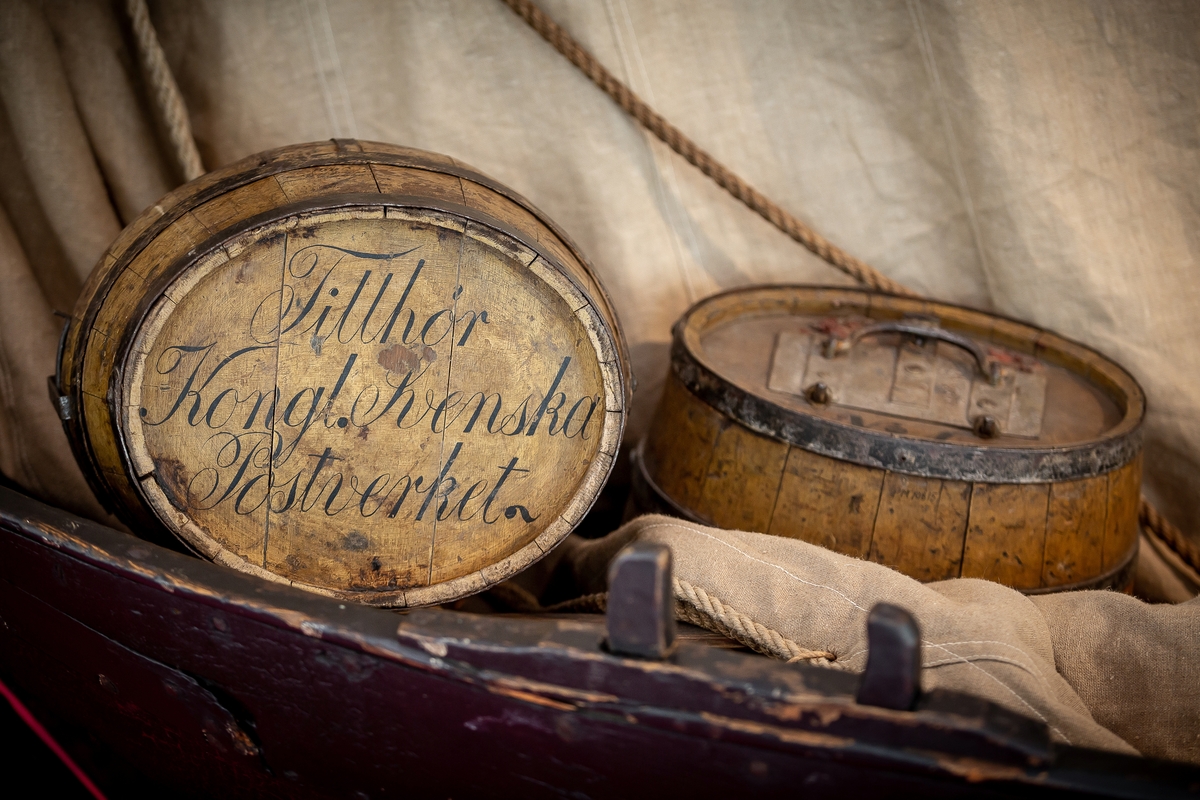 Tillhör
Kongl. Svenska
Postverket~